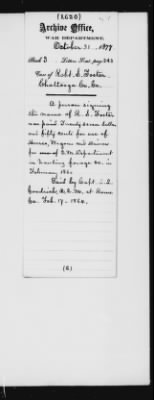 (A680)
Archive Office,
WAR DEPARTMENT,
October 31. 1877
Book 3 Letter List page 243
Case of Robt. S. Foster
Chattooga Co. Ga.
A person signing
the name of R. S. Foster
was paid Twenty seven dollars
and fifty cents for use of
Horses, Wagon and Driver
for use of Q.M. Department
in hauling forage &c. in
February 1864
Paid by Capt.
Goodrich, A.Q.M. at Rome
Ga. Feb. 17 - 1864.
(6)